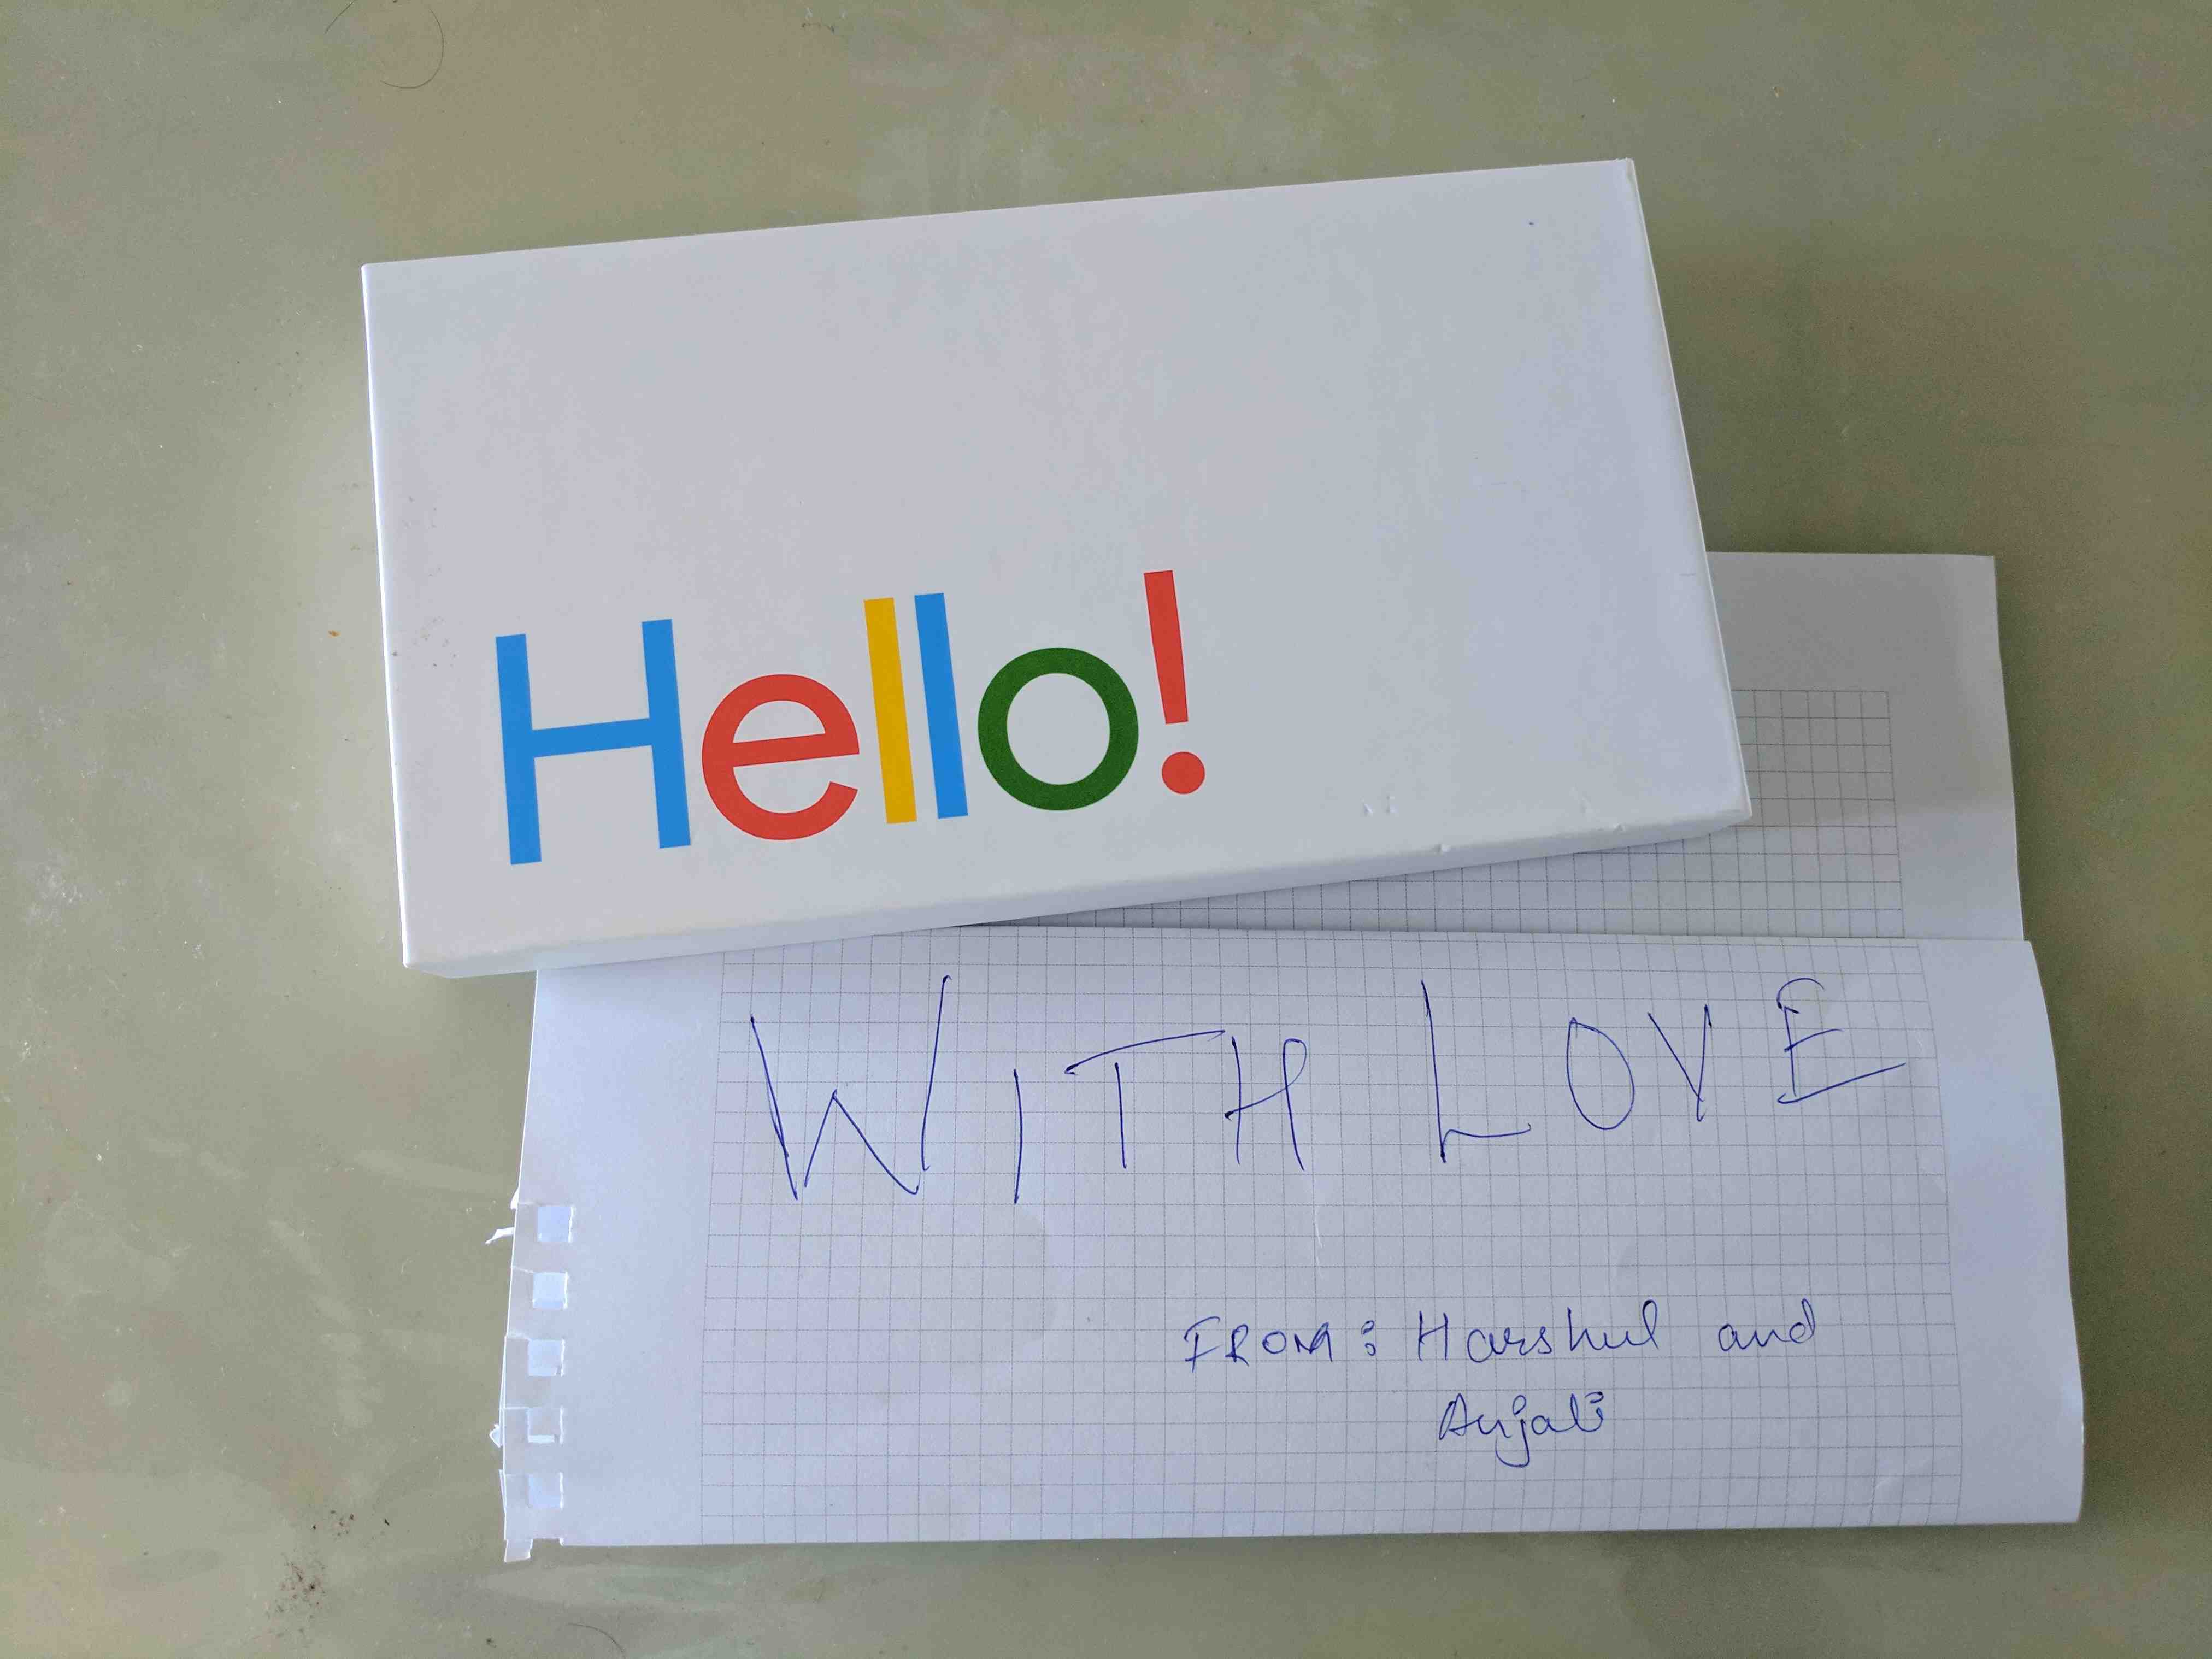 Hello!
WITH LOVE
FROM: Harshul and
Anjali